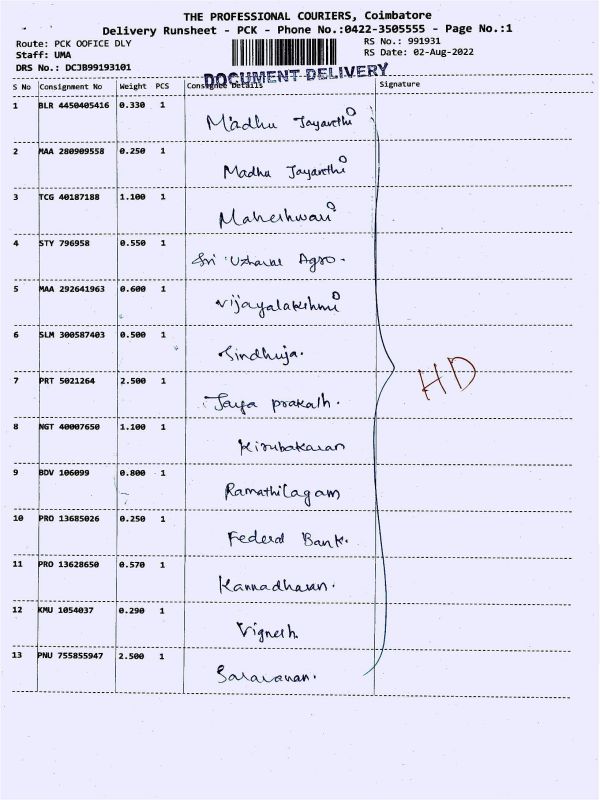 THE PROFESSIONAL COURIERS, Coimbatore
Delivery Runsheet - PCK - Phone No.:0422-3505555 - Page No.:1
Route: PCK OOFICE DLY RS No.: 991931
Staff: UMA RS Date: 02-Aug-2022
DRS No.: DCJB99193101
DOCUMENT DELIVERY
S No Consignment No Weight PCS Consignee Details Signature
1 BLR 4450405416 0.330 1 Madhu Jayavethi
2 MAA 280909558 0.250 1 Madhu Jayanthi
3 TCG 40187188 1.100 1 Maheshwari
4 STY 796958 0.550 1 Sri Uzhavar Agro.
5 MAA 292641963 0.600 1 Vijayalakshmi
6 SLM 300587403 0.500 1 Sindhuja.
7 PRT 5021264 2.500 1 Jaya prakash.
HD
8 NGT 40007650 1.100 1 Kirubakaran
9 BDV 106099 0.800 1 Ramathilagam
10 PRO 13685026 0.250 1 Federal Bank.
11 PRO 13628650 0.570 1 Kannadhasan.
12 KMU 1054037 0.290 1 Vignesh
13 PNU 755855947 2.500 1 Saravanan.